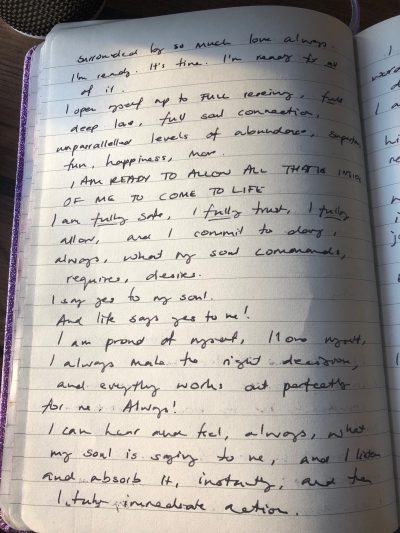 surrounded by so much love always.
I'm ready. It's time. I'm ready for all
of it.
I open myself up to FULL receiving, full
deep love, full soul connection,
unparalleled levels of abundance, support,
fun, happiness, more.
I AM READY TO ALLOW ALL THAT IS INSIDE
OF ME TO COME TO LIFE
I am fully safe, I fully trust, I fully
allow, and I commit to doing,
always, what my soul commands,
requires, desires.
I say yes to my soul.
And life says yes to me!
I am proud of myself, I love myself,
I always make the right decision,
and everything works out perfectly
for me. Always!
I can hear and feel, always, what
my soul is saying to me, and I listen
and absorb it, instantly, and then
I take immediate action.